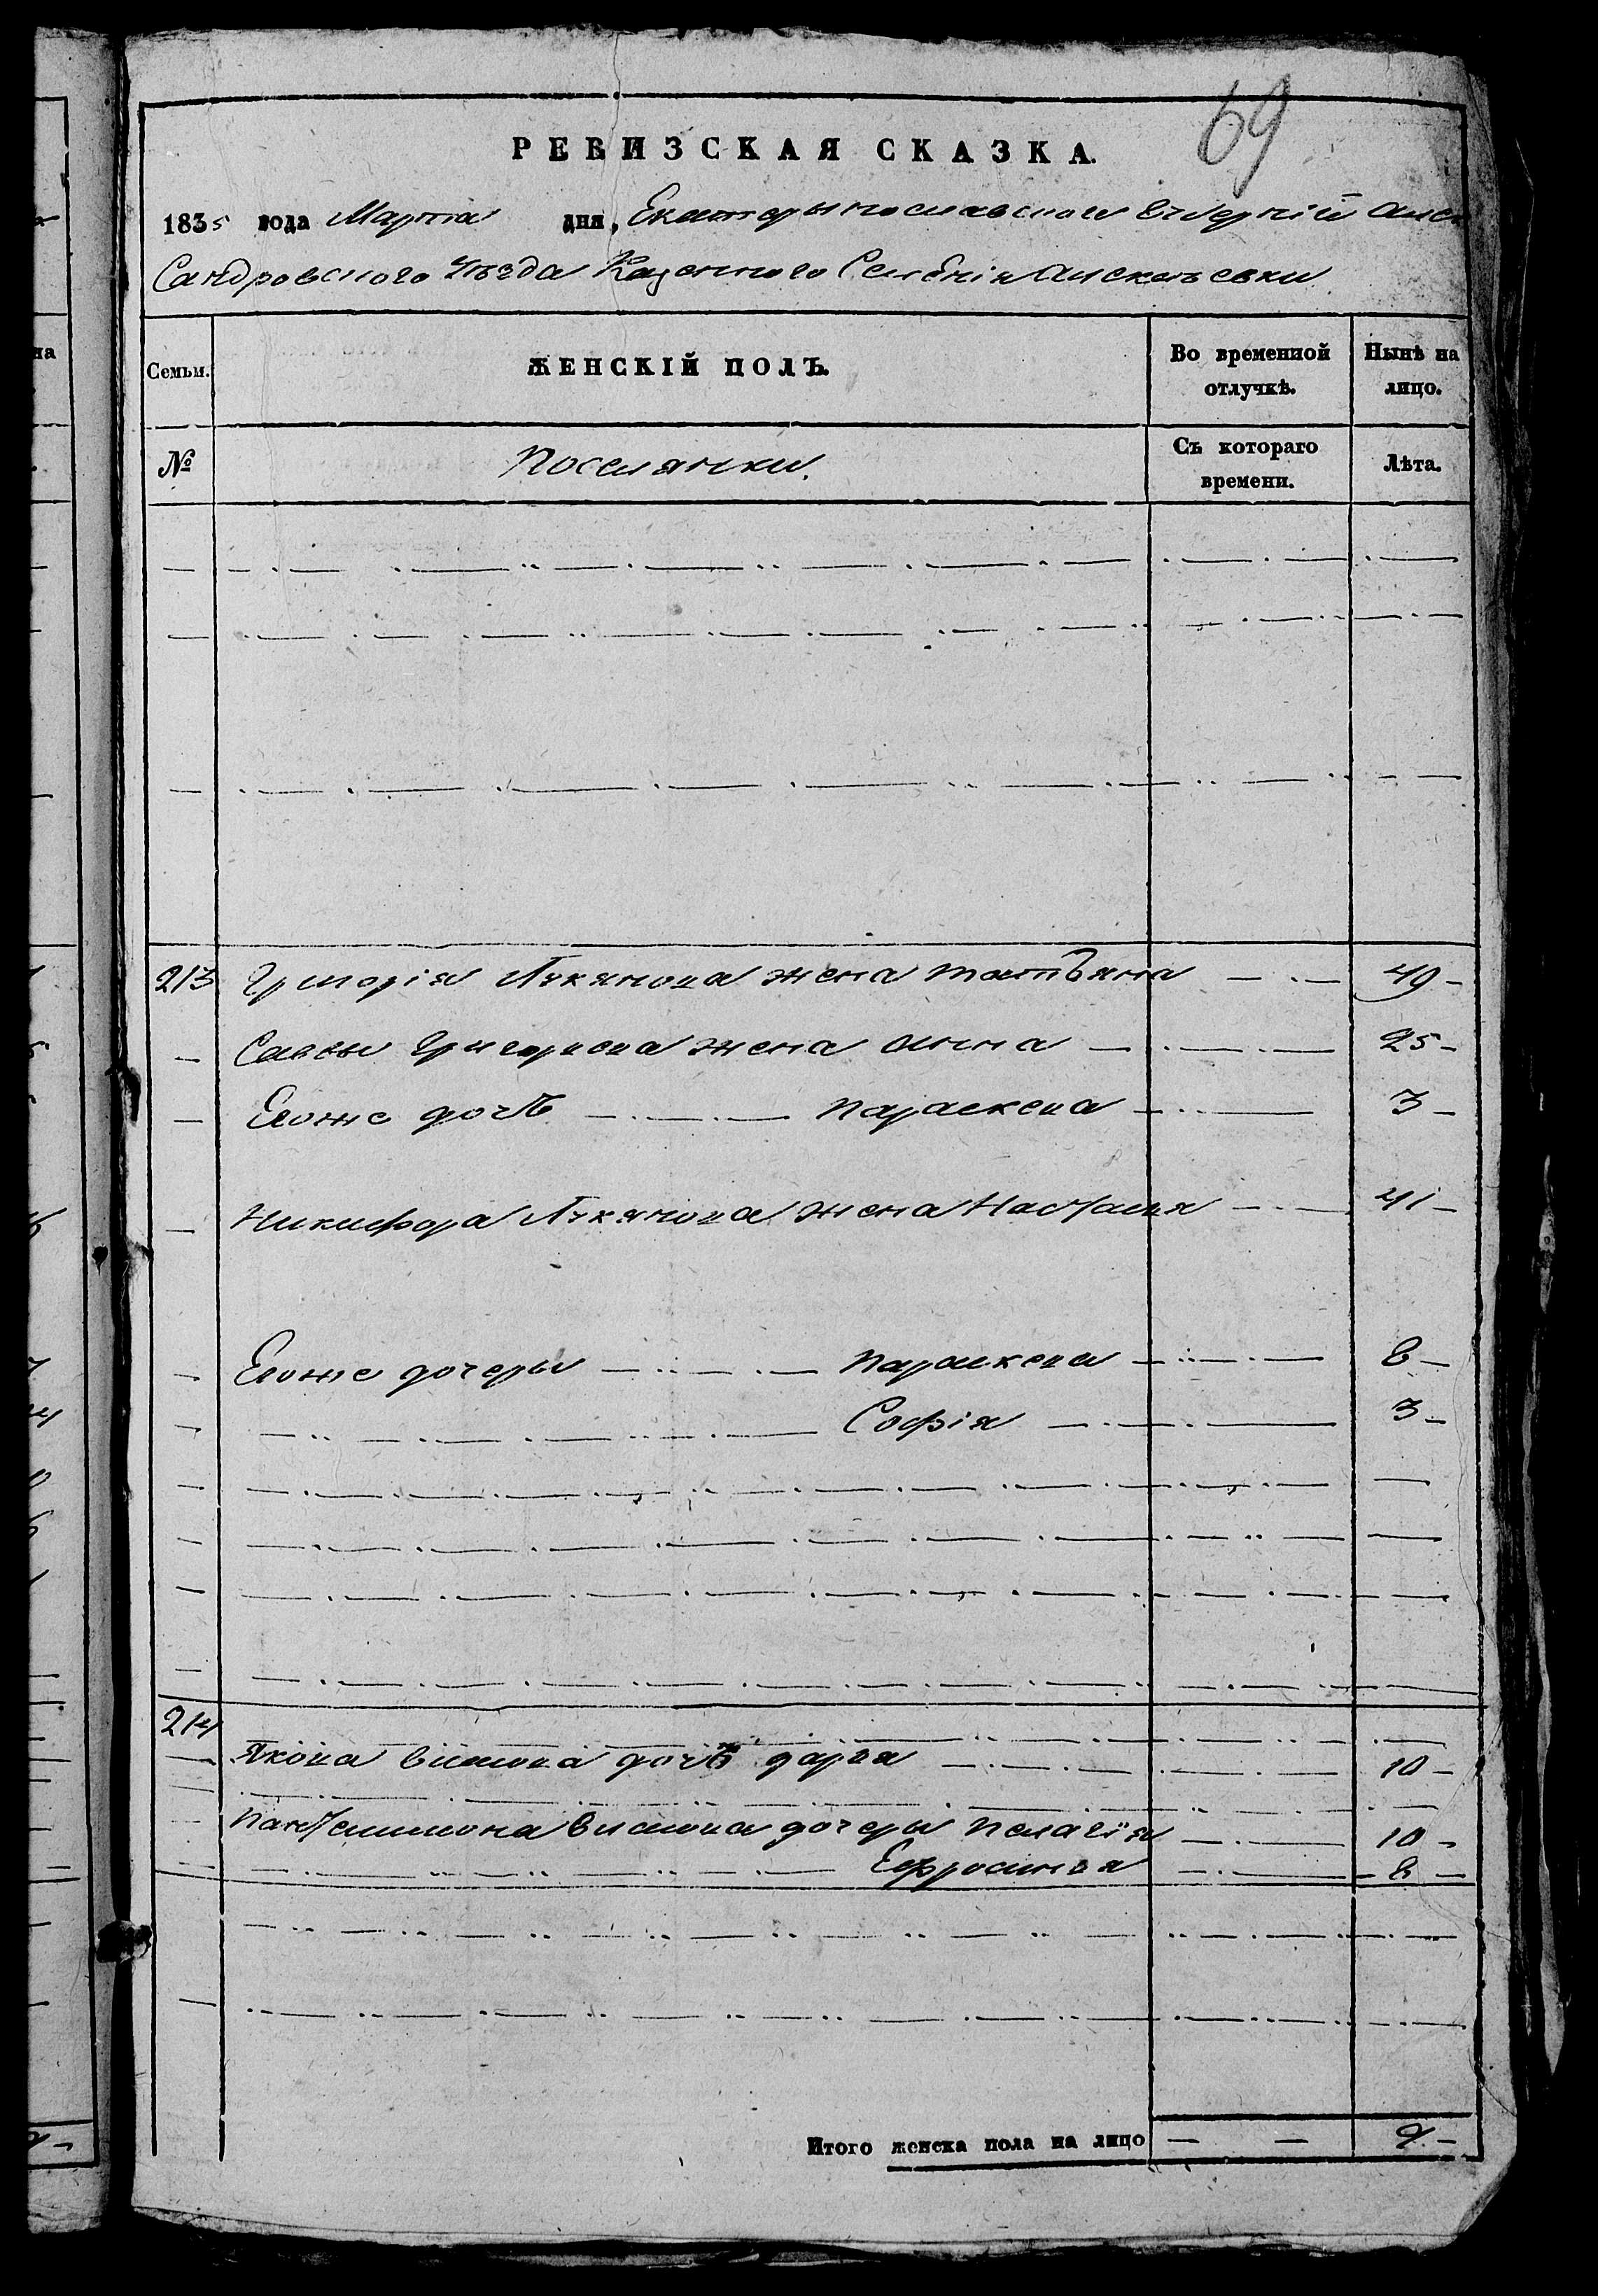 69
РЕВИЗСКАЯ СКАЗКА.
1835 года Марта дня, Екатерынославской Губернiй Алек
Сандровского Уѣзда Казенного Селенiя Алексѣевки
Семьи. ЖЕНСКІЙ ПОЛЪ. Во временной отлучкѣ. Нынѣ на лицо.
№ Поселянки. Съ котораго времени. Лѣта.
213 Григорiя Лукянова жена Татьяна 49
Саввы Григориева жена Анна 25
Еиоже дочь Параскева 3
Никифора Лукянова жена Настасия 41
Еиоже дочеры Параскева 8
Софiя 3
214
Якова дочь Дария 10
Пантелимона дочеры Пелагiя 10
Ефросиния 8
Итого женска пола на лицо 9